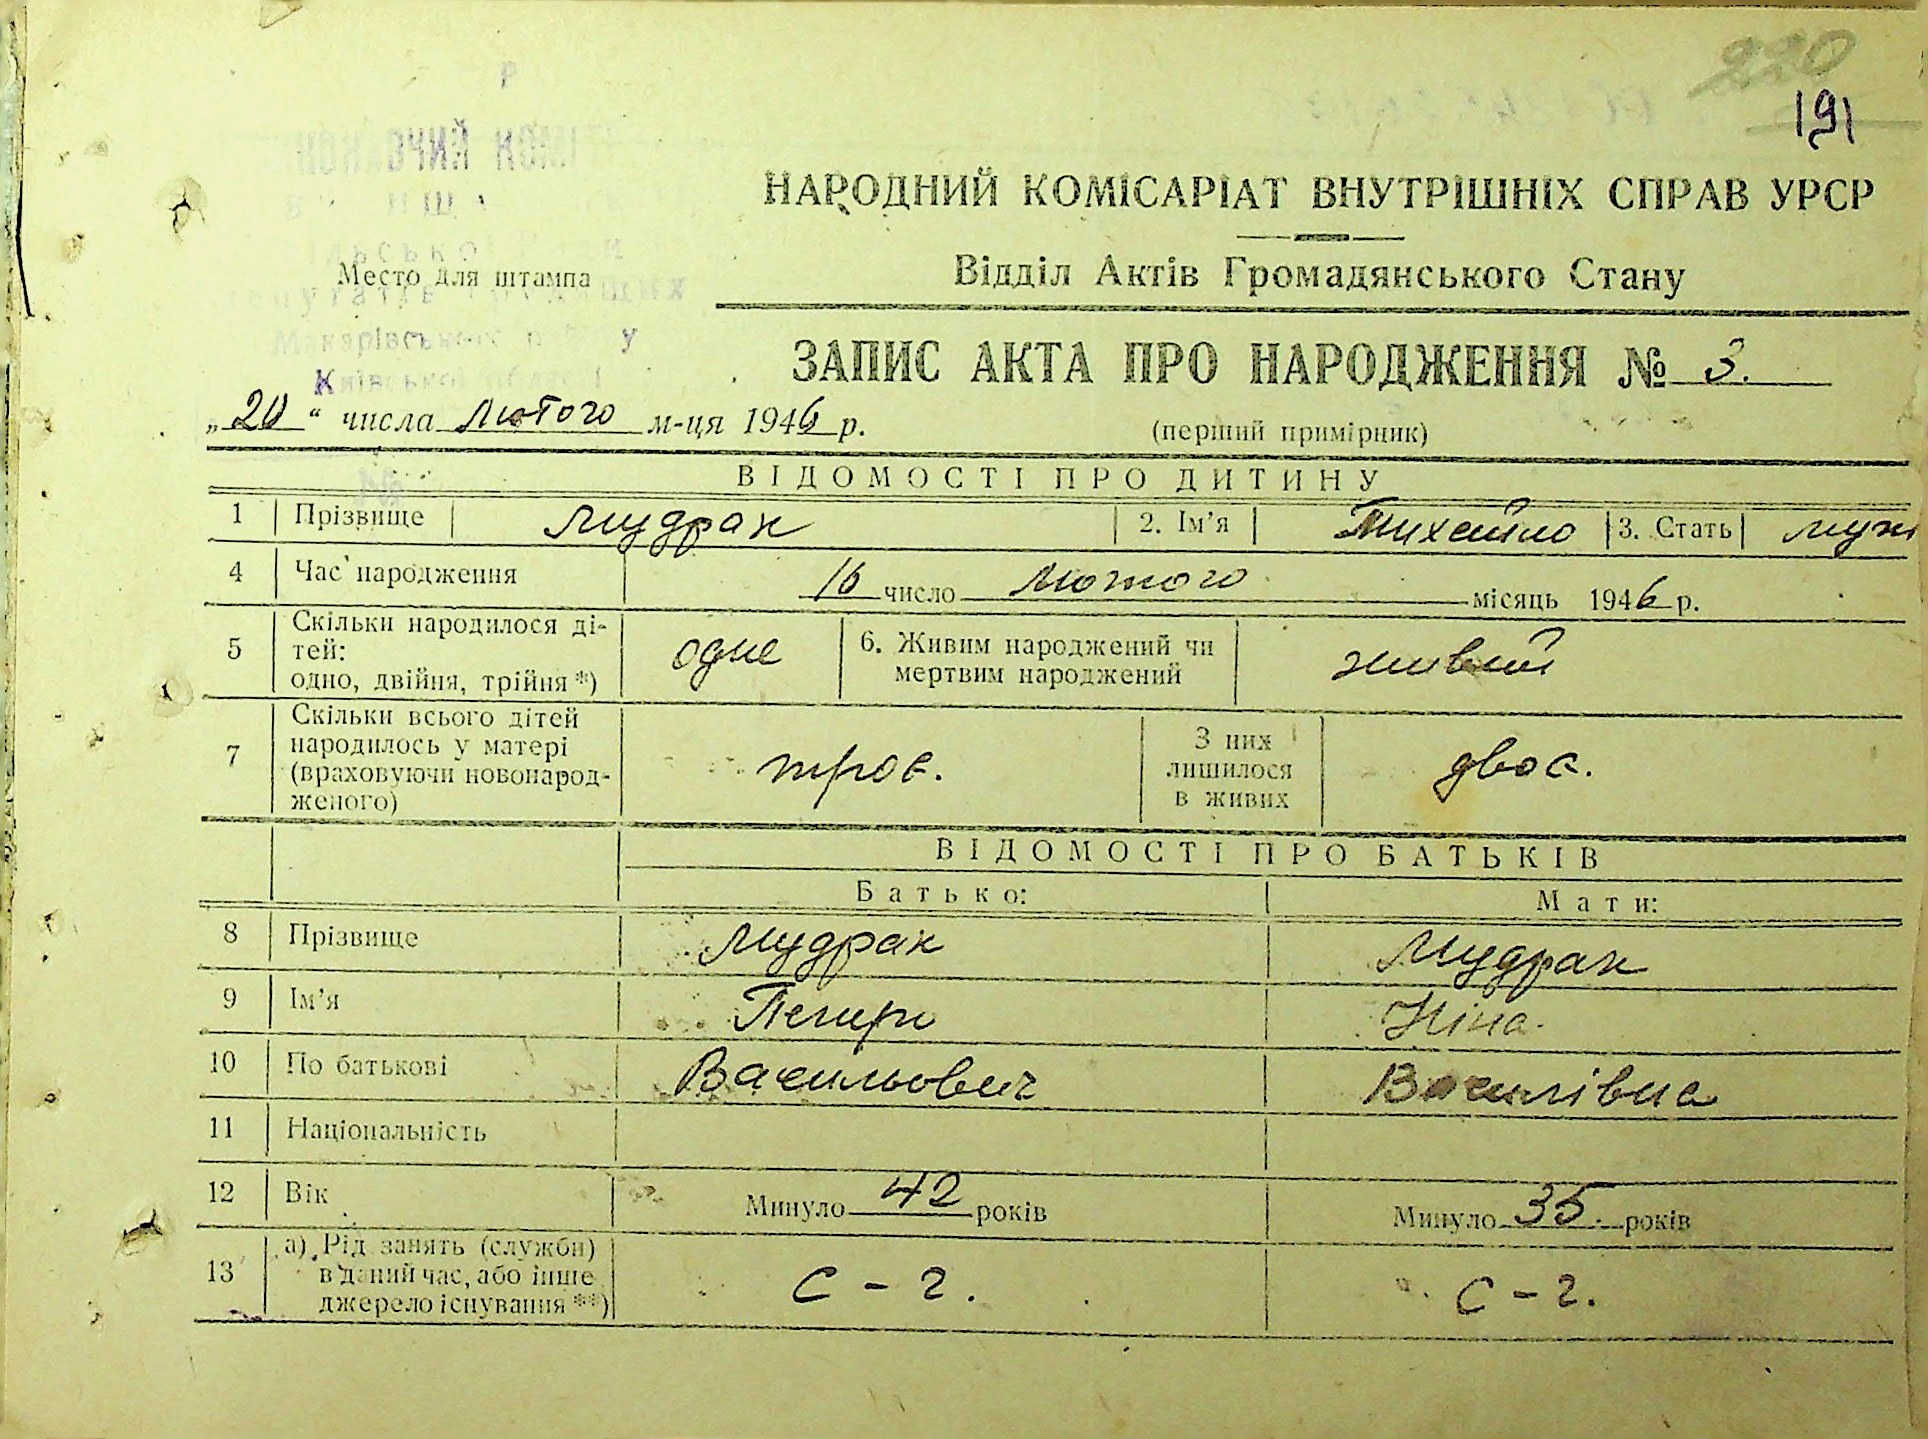 220
191
НАРОДНИЙ КОМІСАРІАТ ВНУТРІШНІХ СПРАВ УРСР
Место для штампа
Відділ Актів Громадянського Стану
Макарівського
Київської
ЗАПИС АКТА ПРО НАРОДЖЕННЯ № 3.
„20“ числа лютого м-ця 1946 р.
(перший примірник)
ВІДОМОСТІ ПРО ДИТИНУ
1 Прізвище Мудрак 2. Ім'я Михайло 3. Стать муж
4 Час народження 16 число лютого місяць 1946 р.
5 Скільки народилося ді-
тей:
одно, двійня, трійня *) одне 6. Живим народжений чи
мертвим народжений живий
7 Скільки всього дітей
народилось у матері
(враховуючи новонарод-
женого) троє. З них
лишилося
в живих двоє.
ВІДОМОСТІ ПРО БАТЬКІВ
Батько: Мати:
8 Прізвище Мудрак Мудрак
9 Ім'я Петро Ніна.
10 По батькові Васильович Василівна
11 Національність
12 Вік Минуло 42 років Минуло 35. років
13 а) Рід занять (служби)
в даний час, або інше
джерело існування **) с-г. с-г.